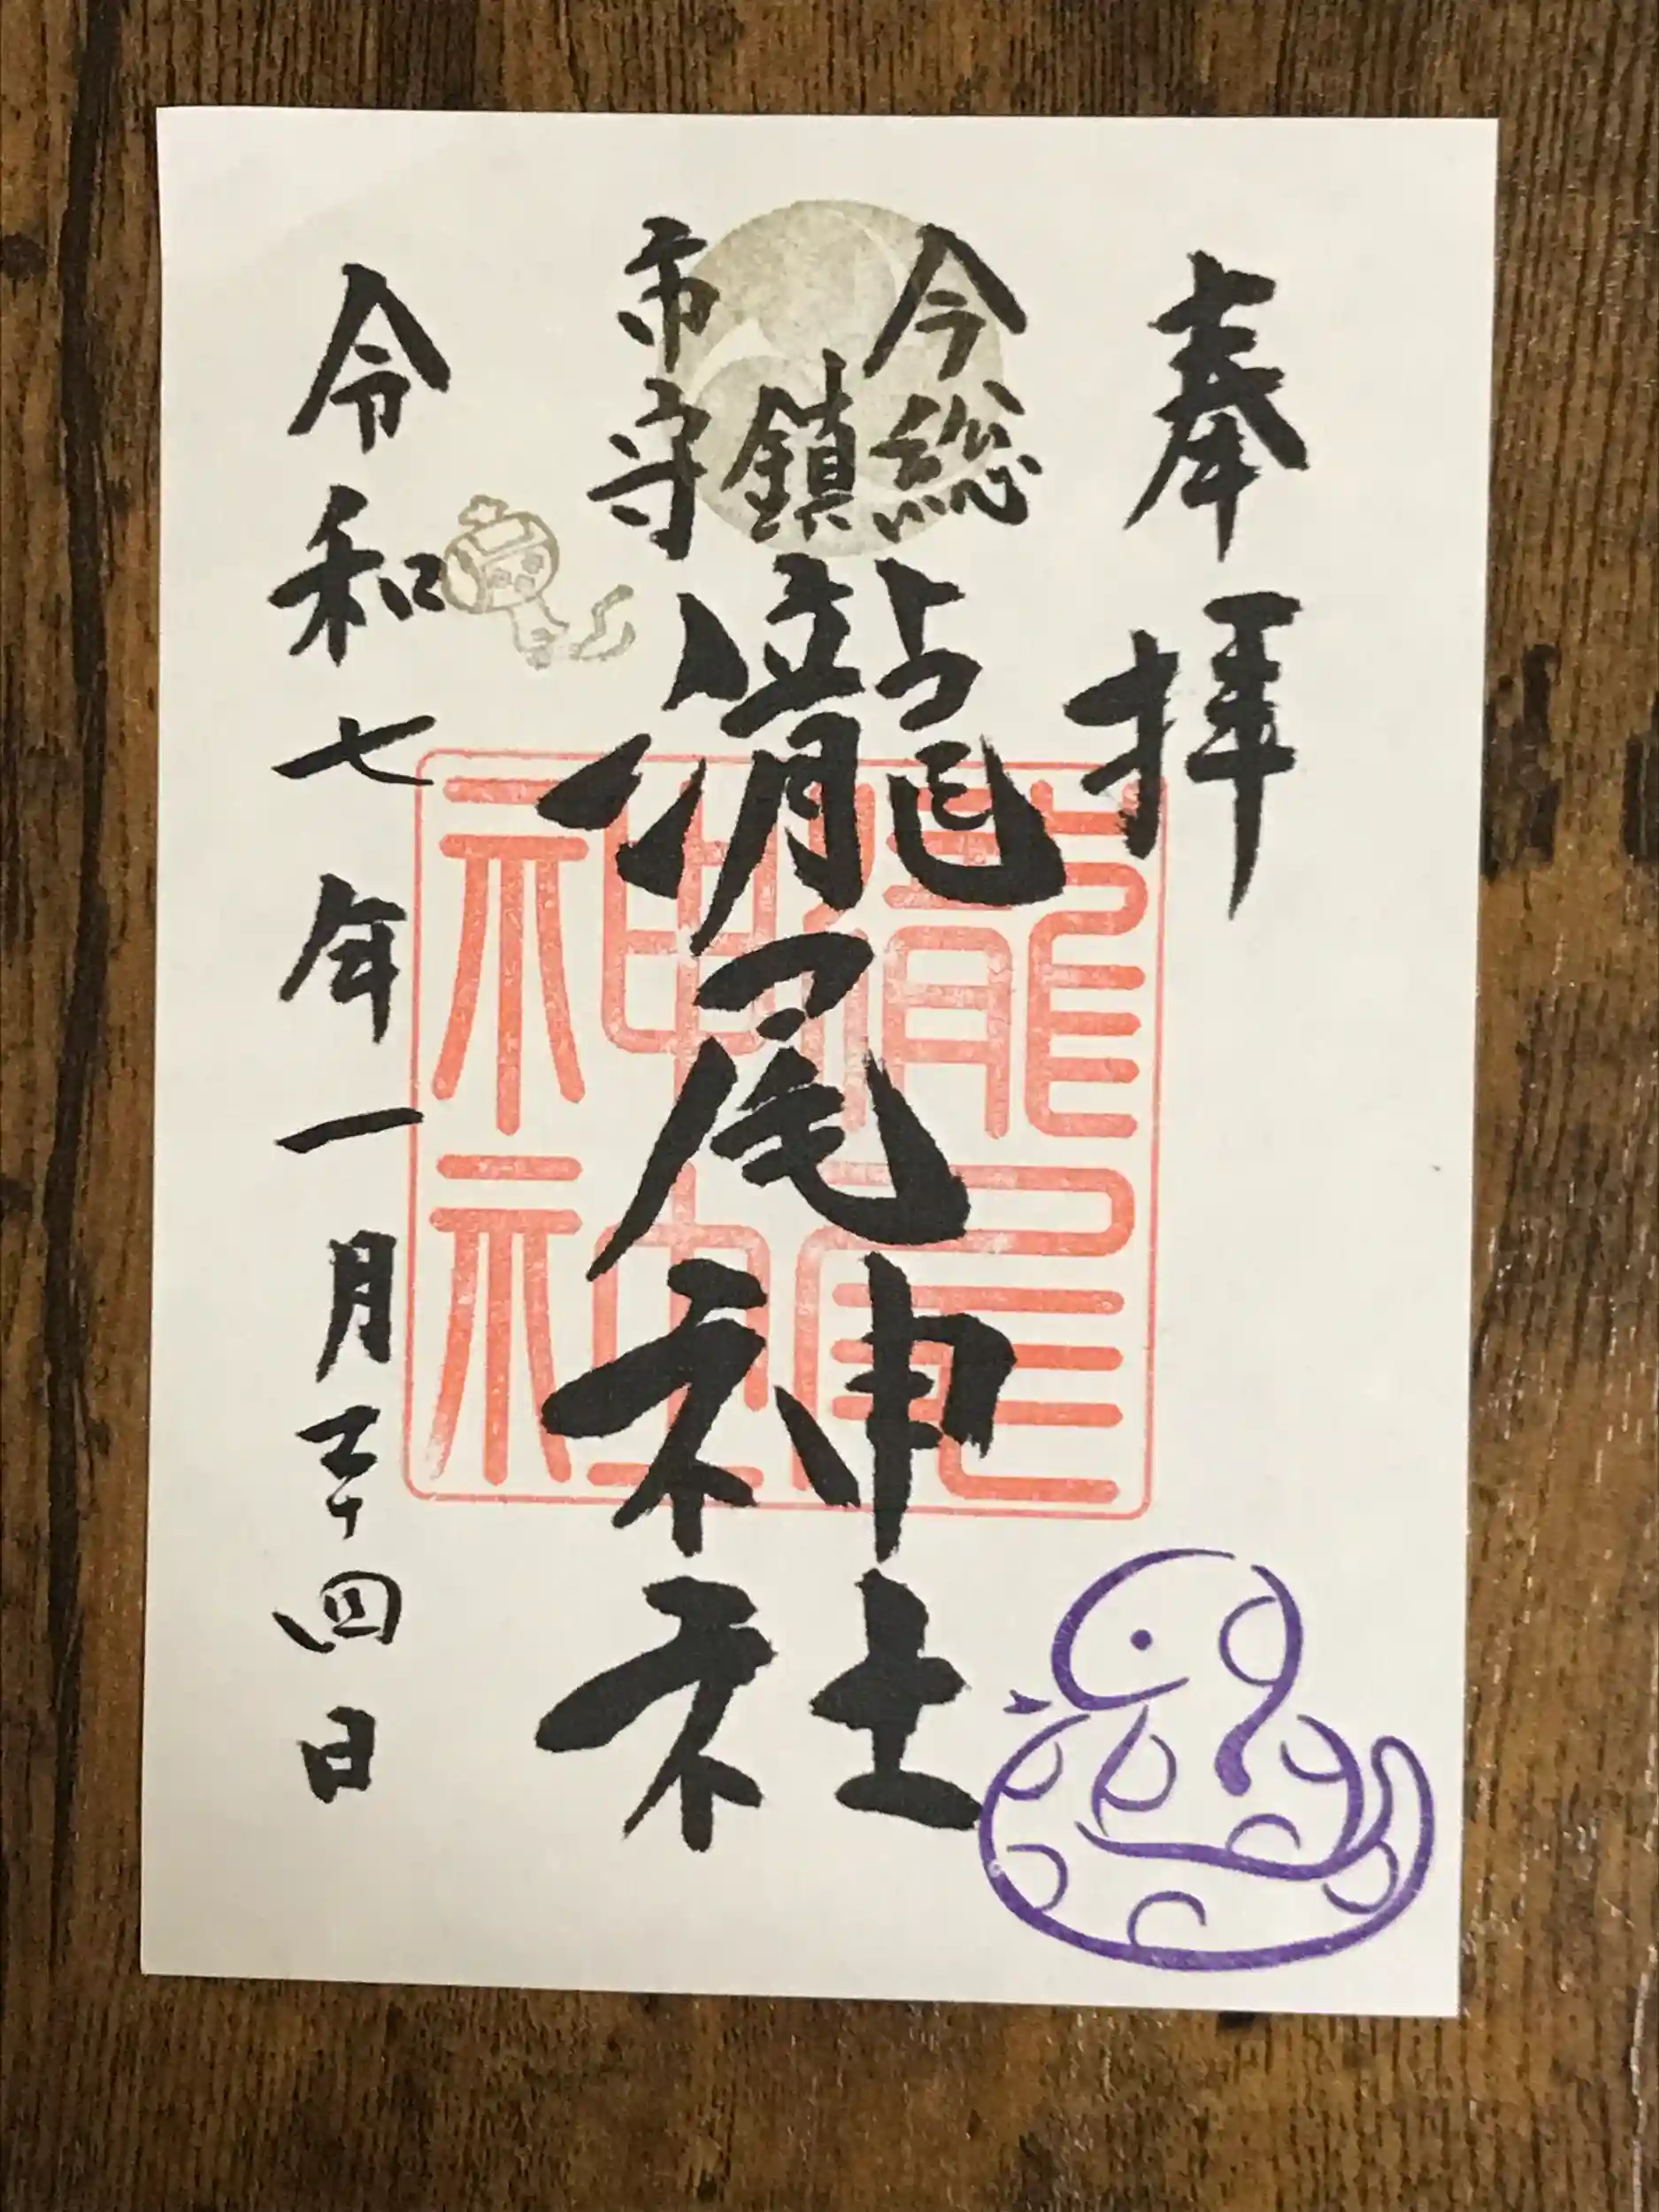 奉拝
今市
総鎮守
瀧尾神社
瀧尾
神社
令和七年一月二十四日